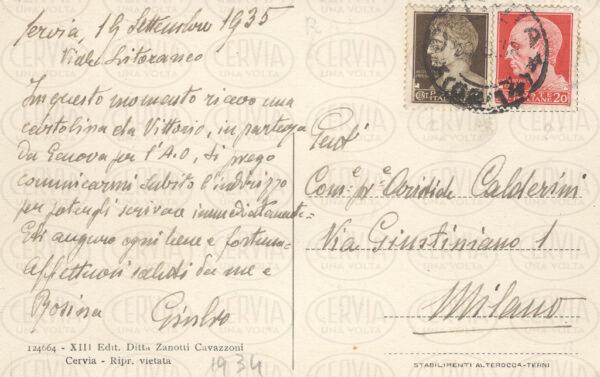 Cervia, 19 Settembre 1935
Viale Litoraneo
In questo momento ricevo una
cartolina da Vittorio, in partenza
da Genova per l'A.O, ti prego
comunicarmi subito l'indirizzo
per potergli scrivere immediatamente
Ti auguro ogni bene e fortuna
Affettuosi saluti da me e
Rosina
Giulio
124664 - XIII Edit. Ditta Zanotti Cavazzoni
Cervia - Ripr. vietata
1934
20
Gent
Com.e pr.e Aristide Calderini
Via Giustiniano 1
Milano
STABILIMENTI ALTEROCCA-TERNI
CERVIA
UNA VOLTA